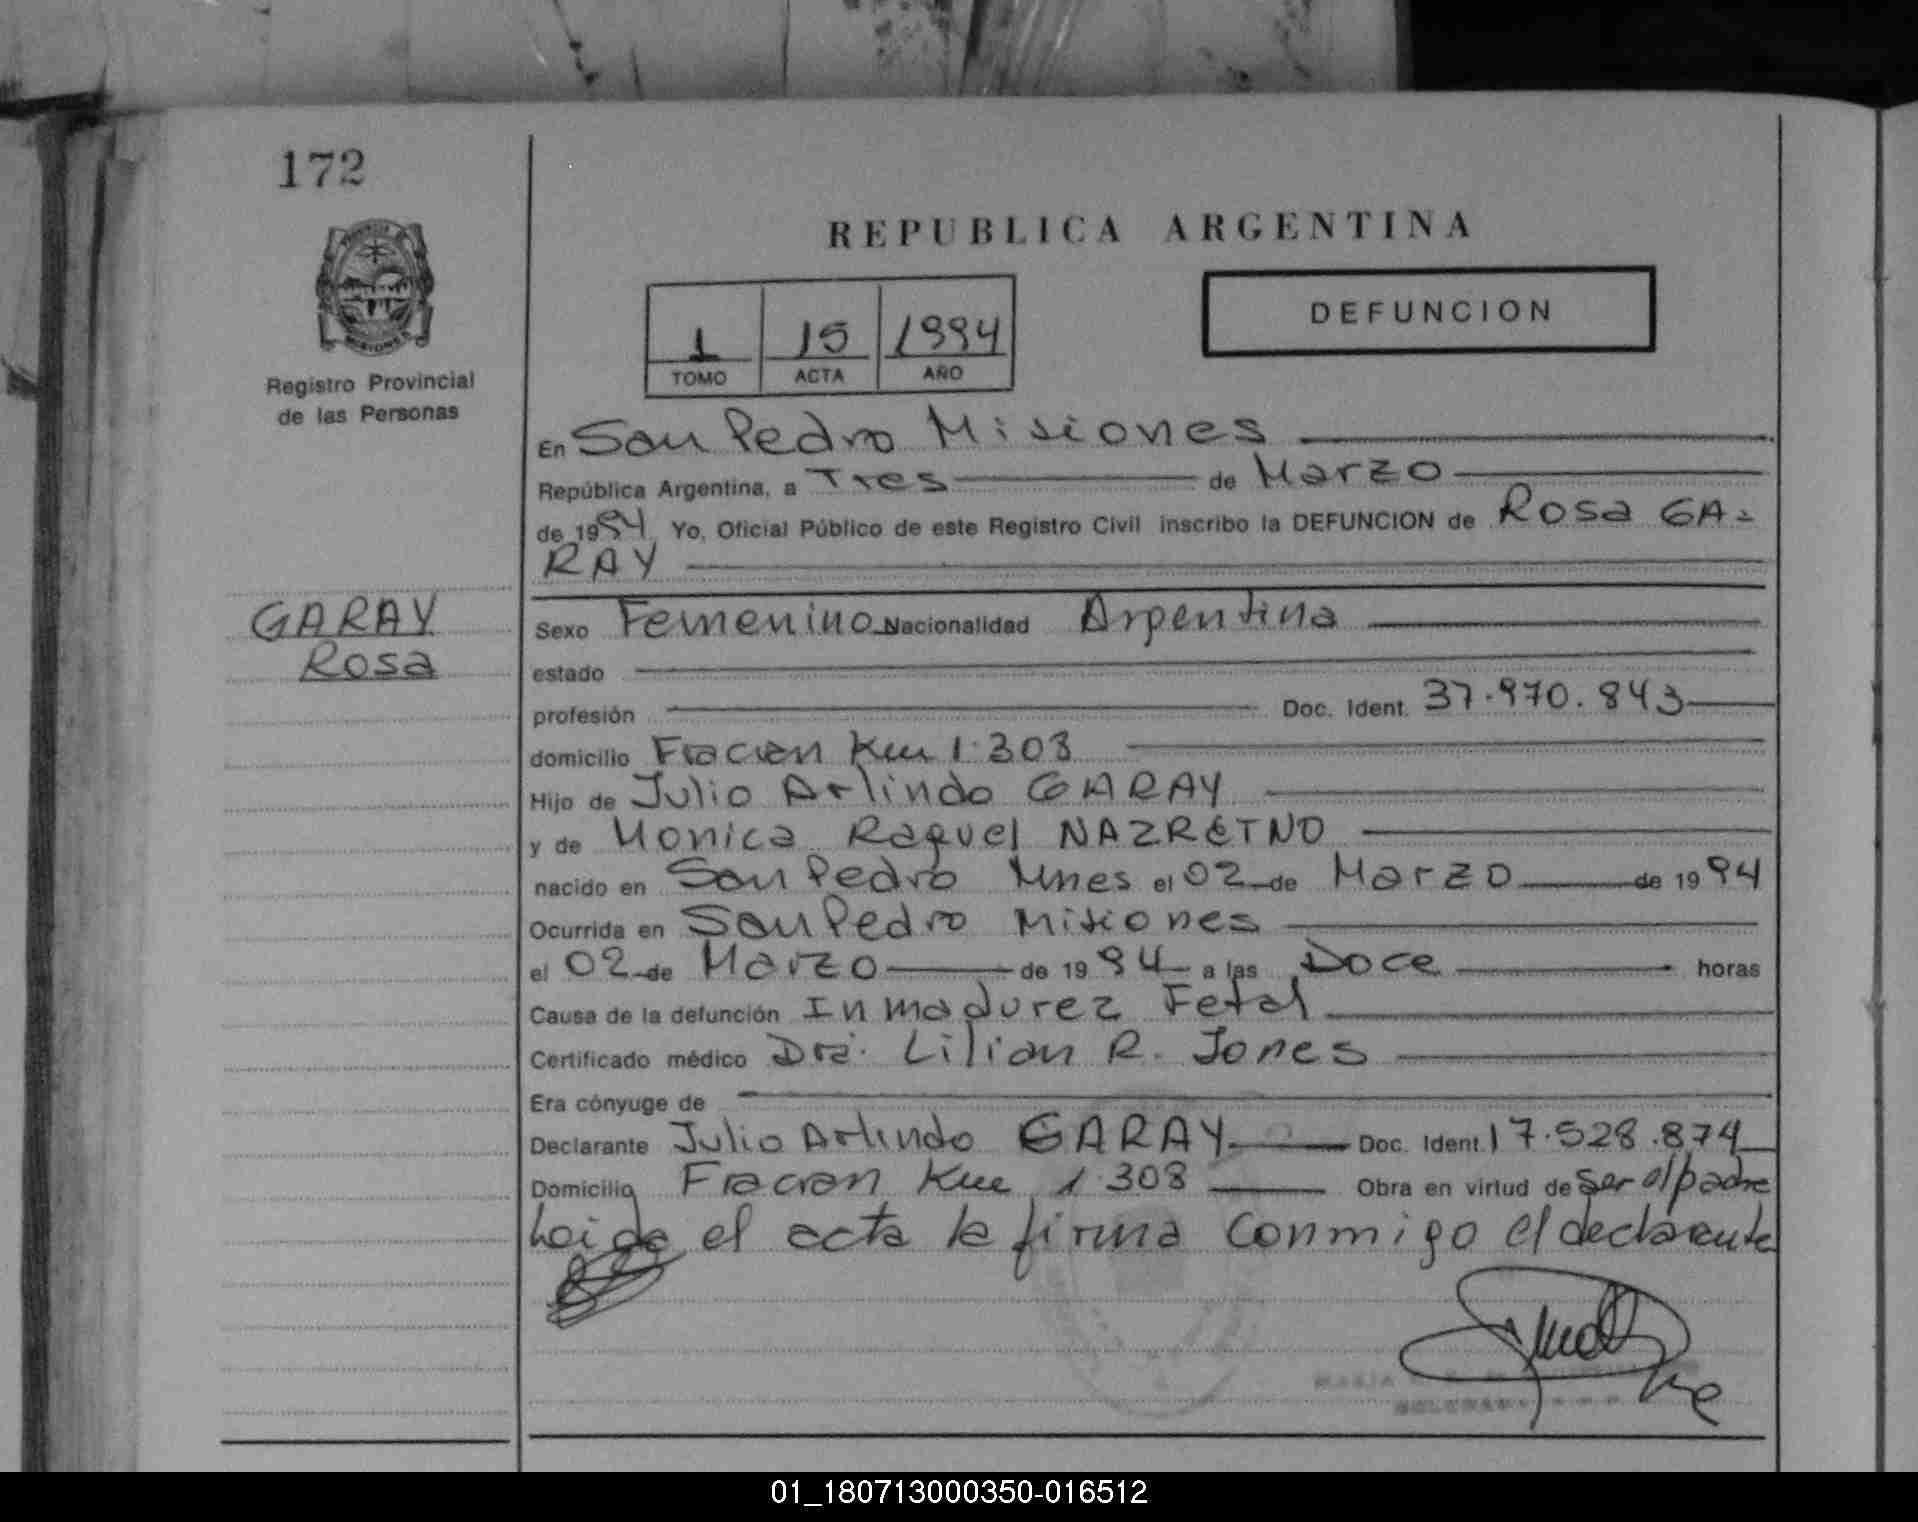 172
REPUBLICA ARGENTINA
DEFUNCION
1 15 1994
TOMO ACTA AÑO
Registro Provincial
de las Personas
En San Pedro Misiones
República Argentina, a Tres de Marzo
de 1994 Yo, Oficial Público de este Registro Civil inscribo la DEFUNCION de Rosa GA-
RAY
GARAY
Rosa
Sexo Femenino Nacionalidad Argentina
estado
profesión Doc. Ident. 37.970.843
domicilio Fracran Km 1.303
Hijo de Julio Arlindo GARAY
y de Monica Raquel NAZRETNO
nacido en San Pedro Mnes el 02 de Marzo de 1994
Ocurrida en San Pedro Misiones
el 02 de Marzo de 1994 a las Doce horas
Causa de la defunción Inmadurez Fetal
Certificado médico Dra. Lilian R. Jones
Era cónyuge de
Declarante Julio Arlindo GARAY Doc. Ident. 17.528.874
Domicilio Fracran Km 1.308 Obra en virtud de ser el padre
Leida el acta la firma conmigo el declarante
MARIA
01_180713000350-016512